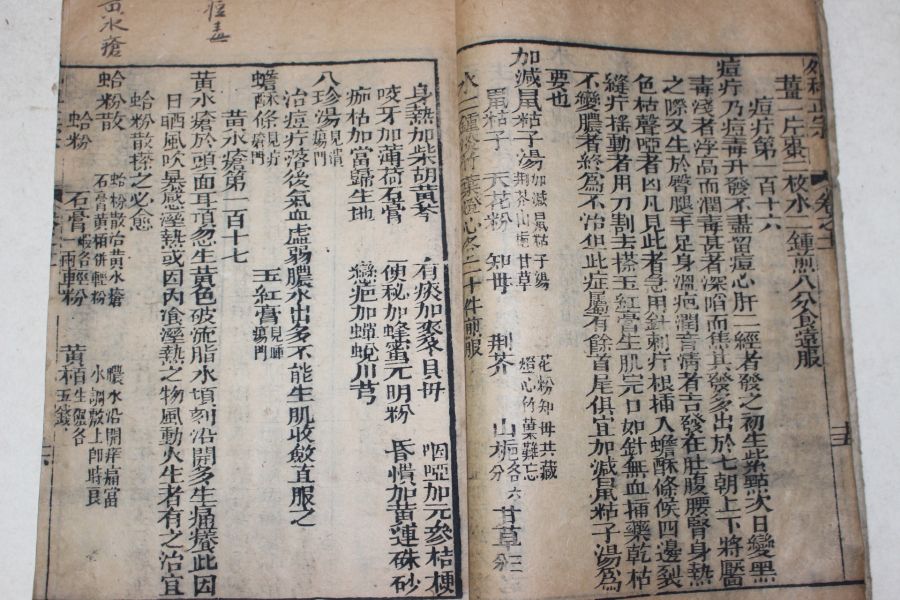 薑一片棗二枚水二鍾煎八分食遠服
痘疔第一百十六
痘疔乃痘毒升發不盡留痘心肝二經者發之初生紫點次日變黑
毒淺者浮高而潤毒甚者深陷而焦其發多出於七朝上下將靨
之際又生於臀腿手足身溫瘡潤音清者吉發在肚腹腰腎身熱
色枯聲啞者凶凡見此者急用針刺疔根插入蟾酥條候四邊裂
縫疔搖動者用刀割去搽玉紅膏生肌完口如針無血插藥乾枯
不變膿者終爲不治但此症屬有餘首尾俱宜加減鼠粘子湯爲
要也
加減鼠粘子湯 加減鼠粘子湯 花粉知毋共藏 荆芥山梔甘草 燈心竹葉難忘
鼠粘子 天花粉 知毋 荆芥 山梔各六分 甘草三分
水二鍾淡竹葉燈心各二十件煎服
身熱加柴胡黃芩 有痰加麥冬貝毋 咽啞加元參桔梗
咬牙加薄荷石膏 便秘加蜂蜜元明粉 昏憒加黃連硃砂
痂枯加當歸生地 戀疤加蟬蛻川芎
八珍湯見潰瘍門
治痘疔落後氣血虛弱膿水出多不能生肌收斂宜服之
蟾酥條見疔瘡門 玉紅膏見腫瘍門
黃水瘡第一百十七
黃水瘡於頭面耳項忽生黃色破流脂水頃刻沿開多生痛癢此因
日晒風吹暴感溼熱或因內飡溼熱之物風動火生者有之治宜
蛤粉散搽之必愈
蛤粉散 蛤粉散治黃水瘡 膿水沿開痒痛當 石膏黃栢併輕粉 水調敷上卽時良
蛤粉 石膏 輕粉 黃栢
黃水瘡